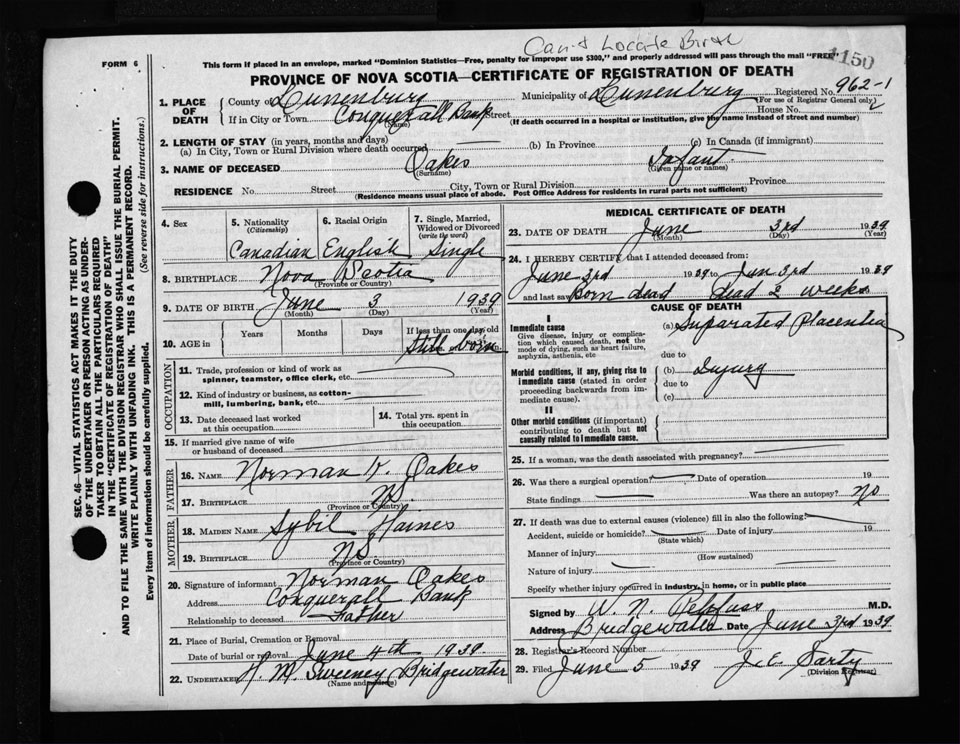 Can't Locate Birth
1150
FORM 6
This form if placed in an envelope, marked "Dominion Statistics—Free, penalty for improper use $300," and properly addressed will pass through the mail "FREE"
PROVINCE OF NOVA SCOTIA—CERTIFICATE OF REGISTRATION OF DEATH
1. PLACE OF DEATH
County of Lunenburg Municipality of Lunenburg Registered No. 962-1
(For use of Registrar General only)
If in City or Town Conquerall Bank Street House No.
(Name) (If death occurred in a hospital or institution, give the name instead of street and number)
2. LENGTH OF STAY (in years, months and days)
(a) In City, Town or Rural Division where death occurred (b) In Province (c) In Canada (if immigrant)
3. NAME OF DECEASED Oakes Infant
(Surname) (Given name or names)
RESIDENCE No. Street City, Town or Rural Division Province
(Residence means usual place of abode. Post Office Address for residents in rural parts not sufficient)
4. Sex
5. Nationality (Citizenship) Canadian
6. Racial Origin English
7. Single, Married, Widowed or Divorced (write the word) Single
8. BIRTHPLACE Nova Scotia
(Province or Country)
9. DATE OF BIRTH June 3 1939
(Month) (Day) (Year)
10. AGE in Years Months Days If less than one day old
Still born
OCCUPATION
11. Trade, profession or kind of work as spinner, teamster, office clerk, etc.
12. Kind of industry or business, as cotton-mill, lumbering, bank, etc.
13. Date deceased last worked at this occupation
14. Total yrs. spent in this occupation
15. If married give name of wife or husband of deceased
FATHER
16. NAME Norman K. Oakes
17. BIRTHPLACE N.S.
(Province or Country)
MOTHER
18. MAIDEN NAME Sybil Haines
19. BIRTHPLACE N.S.
(Province or Country)
20. Signature of informant Norman Oakes
Address Conquerall Bank
Relationship to deceased Father
21. Place of Burial, Cremation or Removal
Date of burial or removal June 4th 1939.
22. UNDERTAKER H. M. Sweeney Bridgewater
(Name and address)
MEDICAL CERTIFICATE OF DEATH
23. DATE OF DEATH June 3rd 1939
(Month) (Day) (Year)
24. I HEREBY CERTIFY that I attended deceased from:
June 3rd 1939 to Jun 3rd 1939
and last saw Born dead dead 2 weeks
CAUSE OF DEATH
I
Immediate cause
Give disease, injury or complication which caused death, not the mode of dying, such as heart failure, asphyxia, asthenia, etc
(a) Separated Placenta
due to
Morbid conditions, if any, giving rise to immediate cause (stated in order proceeding backwards from immediate cause).
(b) Injury
due to
(c)
II
Other morbid conditions (if important) contributing to death but not causally related to immediate cause.
25. If a woman, was the death associated with pregnancy?
26. Was there a surgical operation? Date of operation 19
State findings Was there an autopsy? no
27. If death was due to external causes (violence) fill in also the following:
Accident, suicide or homicide? Date of injury 19
(State which)
Manner of injury
(How sustained)
Nature of injury
Specify whether injury occurred in industry, in home, or in public place
Signed by W. N. Rehfuss M.D.
Address Bridgewater Date June 3rd 1939
28. Registrar's Record Number
29. Filed June 5 1939 J. E. Sarty
(Division Registrar)
SEC. 46—VITAL STATISTICS ACT MAKES IT THE DUTY
OF THE UNDERTAKER OR PERSON ACTING AS UNDER-
TAKER TO OBTAIN ALL THE PARTICULARS REQUIRED
IN THE "CERTIFICATE OF REGISTRATION OF DEATH"
AND TO FILE THE SAME WITH THE DIVISION REGISTRAR WHO SHALL ISSUE THE BURIAL PERMIT.
WRITE PLAINLY WITH UNFADING INK. THIS IS A PERMANENT RECORD.
Every item of information should be carefully supplied. (See reverse side for instructions.)